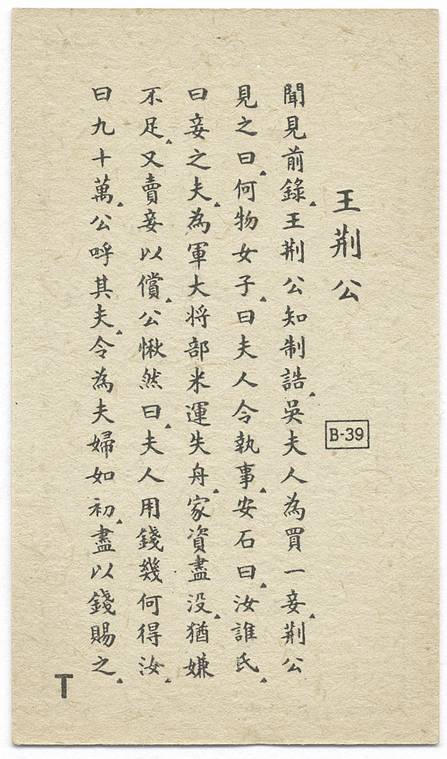 王荆公
B-39
聞見前錄▲王荆公知制誥▲吳夫人為買一妾▲荆公
見之曰▲何物女子▲曰夫人令執事▲安石曰▲汝誰氏▲
曰妾之夫▲為軍大将部米運失舟▲家資盡没▲猶嫌
不足▲又賣妾以償▲公愀然曰▲夫人用錢幾何得汝▲
曰九十萬▲公呼其夫▲令為夫婦如初▲盡以錢賜之▲
T